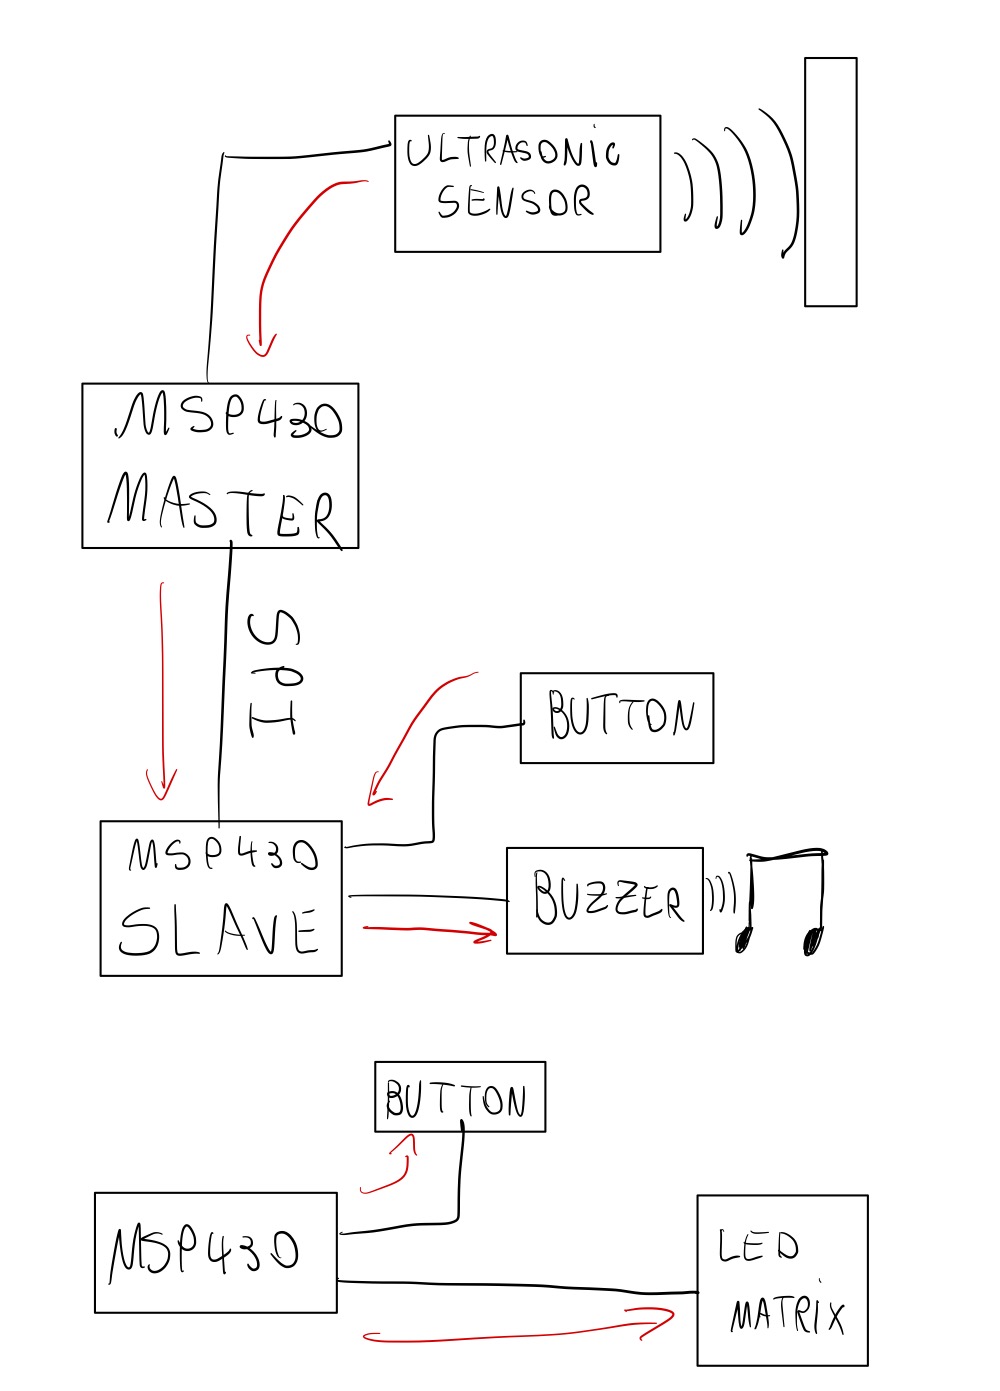 ULTRASONIC
SENSOR
MSP430
MASTER
SPI
BUTTON
MSP430
SLAVE
BUZZER
BUTTON
MSP430
LED
MATRIX